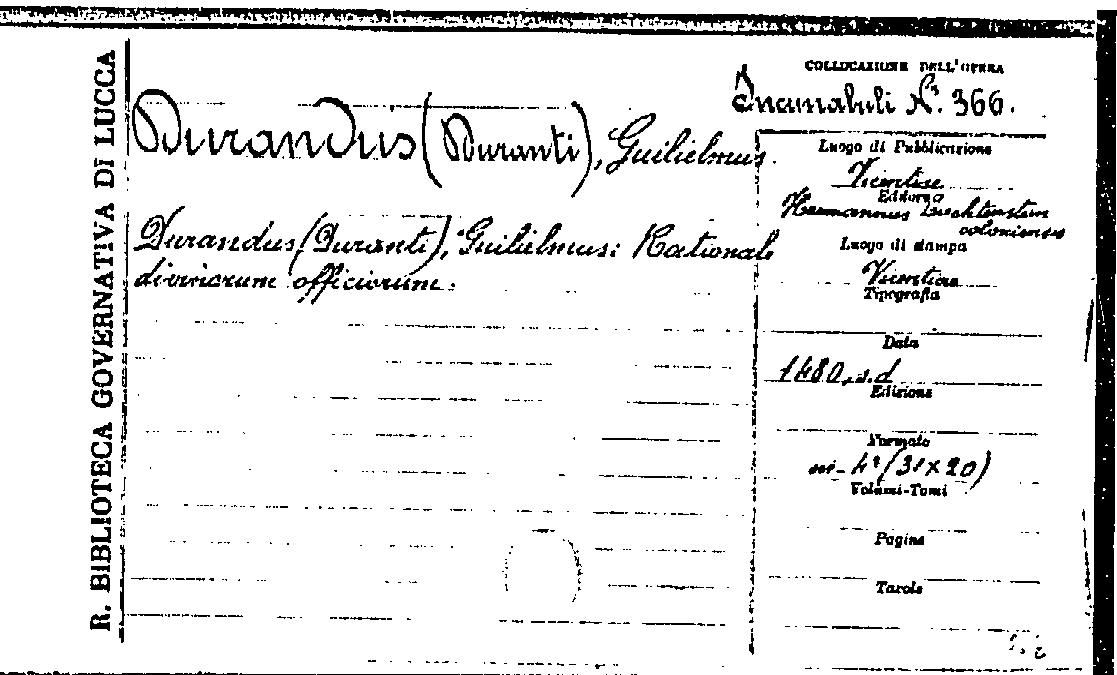 R. BIBLIOTECA GOVERNATIVA DI LUCCA
COLLOCAZIONE DELL'OPERA
Incunabuli N.º 366.
Durandus (Duranti), Guilielmus.
Durandus (Duranti), Guilielmus: Rationale
divinorum officiorum.
Luogo di Pubblicazione
Vicentiae
Editore
Hermannus Liechtenstein
coloniensis
Luogo di stampa
Vicentiae
Tipografia
Data
1480, s.d
Edizione
Formato
in-4º (31×20)
Volumi-Tomi
Pagine
Tavole